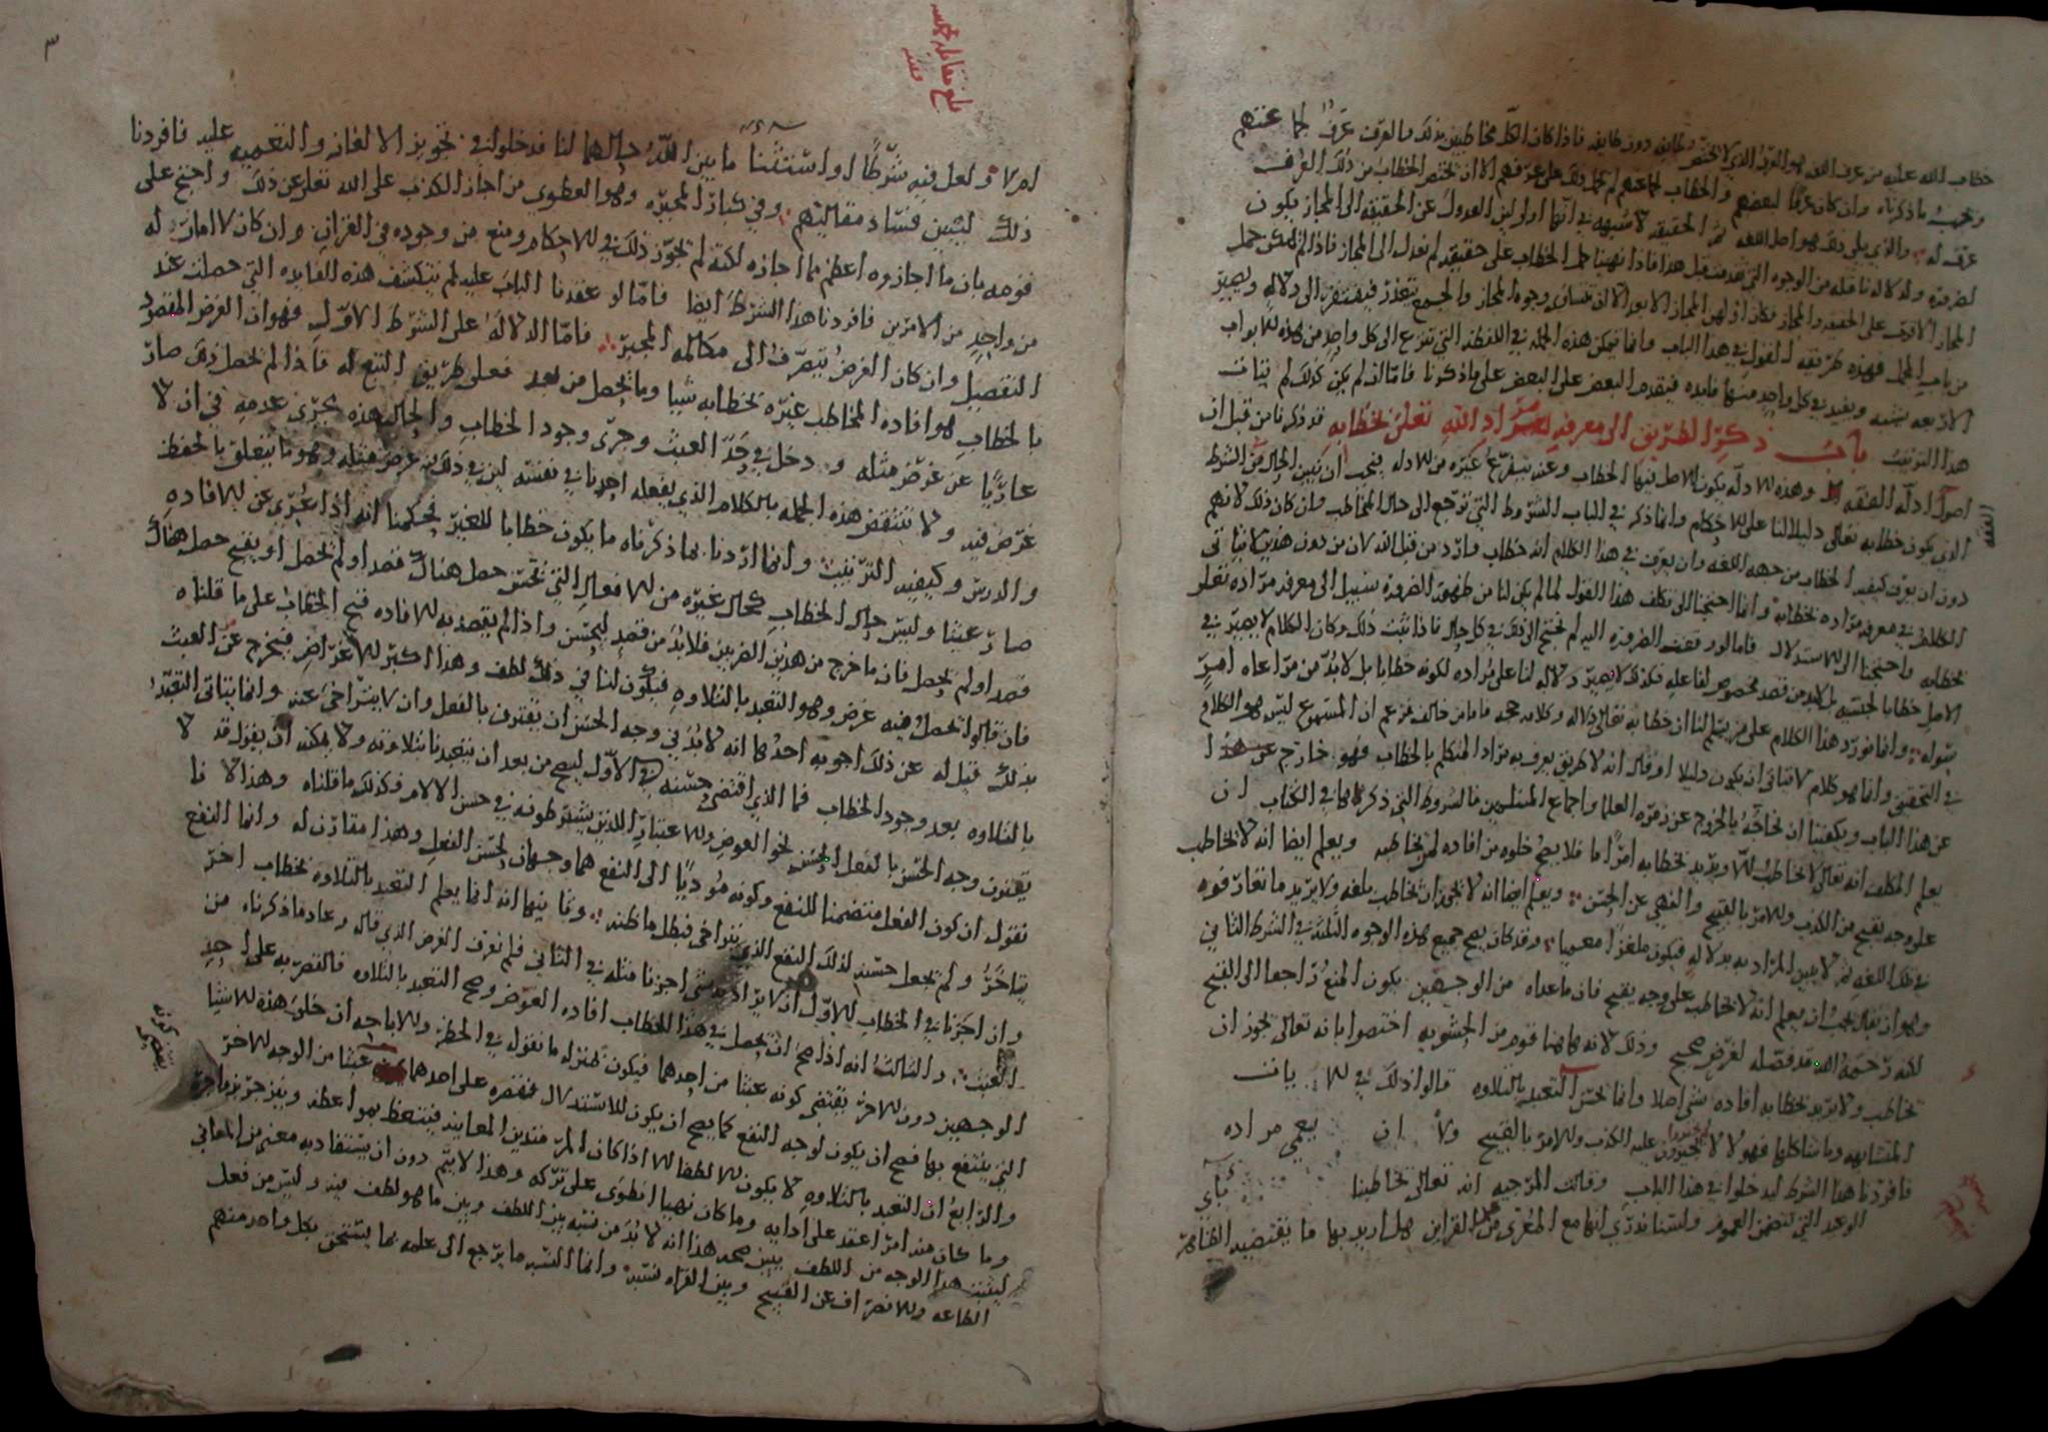 خطاب الله عليه من عرف اللغه هو العرف الذي لا يختص بطايفه دون طايفه فاذا كان الكل مخاطبين بذلك والعرف عرفا لجماعتهم
وجب ما ذكرناه وان كان عرفا لبعضهم والخطاب لجماعتهم لم يحمل ذلك على عرفهم الا ان يختص الخطاب من ذلك العرف
عرف له والذي يلي ذلك هو اصل اللغه ثم الحقيقه لا شبهه في انها اولى لان العدول عن الحقيقه الى المجاز يكون
لضروره ولدلاله ناقله من الوجوه التي فاذا تهيا حمل الخطاب على حقيقته لم نعدل الى المجاز فاذا لم يمكن حمل
من باب المجمل فهذه طريقه القول في هذا الباب وانما يمكن هذه الجمله في اللفظه التي تنزع الى كل واحد من هذه الابواب
الاربعه بشبه ويفيد في كل واحد منها فايده فيقدم البعض على البعض على ما ذكرنا فاما ان لم يكن كذلك لم يتات
هذا الترتيب باب ذكر الطريق الى معرفه مراد الله تعالى بخطابه قد ذكرنا من قبل ان
اصول ادله الفقه وهذه الادله يكون الاصل فيها الخطاب وعنه يتفرع غيره من الادله فيجب ان نبين الحال من الشرط
الفقه
الذي يكون خطابه تعالى دليلا لنا على الاحكام وانما ذكر في الباب الشروط التي ترجع الى حال المخاطب وان كان ذلك لا يتم
دون ان يعرف كيفيه الخطاب من جهه اللغه وان يعرف في هذا الكلام انه خطاب وارد من قبل الله لان من دون هذين لا يتاتى
الخطاب في معرفه مراده بخطابه وانما احتجنا الى تكلف هذا القول لما لم يكن لنا من طريق الضروره سبيل الى معرفه مراده تعالى
بخطابه واحتجنا الى الاستدلال فاما لو وقفت الضروره اليه لم نحتج الى ذلك في كل حال فاذا ثبت ذلك وكان الكلام لا يصير في
الاصل خطابا لجنسه بل لا بد من قصد مخصوص لفاعله فكذلك لا يصير دلاله لنا على مراده لكونه خطابا بل لا بد من مراعاه امر
سواه وانما نورد هذا الكلام على من يسلم لنا ان خطابه تعالى دلاله وكلامه حجه فاما من خالف فزعم ان المسموع ليس هو الكلام
في التحقيق وانما هو كلام لا يتاتى ان يكون دليلا او قال انه لا طريق يعرف به مراد المتكلم بالخطاب فهو خارج عن هذا
عن هذا الباب ويكفينا ان نحاجه بالخروج عن زمره العلما واجماع المسلمين فالشروط التي ذكرها في الكتاب ان
يعلم المكلف انه تعالى لا يخاطب الا ويريد بخطابه امرا ما فلا يصح خلوه من افاده لمن يخاطبه ويعلم ايضا انه لا يخاطب
على وجه يقبح من الكذب والامر بالقبيح والنهي عن الحسن ويعلم ايضا انه لا يجوز ان يخاطب بلغه ولا يريد ما تعارفوه
في تلك اللغه ثم لا يبين المراد به بدلاله فيكون ملغزا معميا وقد كان يصح جميع هذه الوجوه الثلثه في الشرط الثاني
وهو ان يقال يجب ان يعلم انه لا يخاطب على وجه يقبح فان ما عداه من الوجهين يكون المنع راجعا الى القبيح
لكنه رحمه الله قد فصله لغرض صحيح وذلك لانه هاهنا قوم من الحشويه اختصوا بانه تعالى يجوز ان
يخاطب ولا يريد بخطابه افاده شي اصلا وانما يحسن التعبد بالتلاوه قالوا ذلك في الايات
المتشابهه وما شاكلها فهولا لا يجوزون عليه الكذب والامر بالقبيح ولا ان يعمي مراده
فافردنا هذا الشرط ليدخلوا في هذا الباب وقالت المرجيه انه تعالى يخاطبنا باي
الوعيد التي تتضمن العموم ولسنا ندري انها مع التعري من القراين هل اريد بها ما يقتضيه الظاهر
بلغ مقابله
ام لا ولعل فيه شرطا او استثنا ما بين الله حالهما لنا فدخلوا في تجويز الالغاز والتعميه عليه فافردنا
ذلك ليتبين فساد مقالتهم وفي كبار المجبره وهو العطوي من اجاز الكذب على الله تعالى عن ذلك واحتج على
قومه بان ما اجازوه اعظم مما اجازه لكنه لم يجوز ذلك في الاحكام ومنع من وجوده في القران وان كان لا امان له
من واحد من الامرين فافردنا هذا الشرط ايضا فاما لو عقدنا الباب عليه لم تنكشف هذه الفايده التي حصلت عند
التفصيل وان كان الغرض ينصرف الى مكالمه المجبره فاما الدلاله على الشرط الاول فهو ان الغرض المقصود
بالخطاب هو افاده المخاطب غيره بخطابه شيا وما يحصل من بعد فعلى طريق التبع له فاذا لم يحصل ذلك صار
عاريا عن غرض مثله ودخل في حد العبث وجرى وجود الخطاب والحال هذه مجرى عدمه في ان لا
غرض فيه ولا ينتقض هذه الجمله بالكلام الذي يفعله احدنا في نفسه لان في ذلك غرض مثله وهو ما يتعلق بالحفظ
والدرس وكيفيه الترتيب وانما اردنا بما ذكرناه ما يكون خطابا للغير فحكمنا انه اذا عري عن الافاده
صار عبثا وليس حال الخطاب كحال غيره من الافعال التي تحسن حصل هناك قصد او لم يحصل او يقبح حصل هناك
قصد او لم يحصل فان ما خرج من هذين الضربين فلا بد من قصد ليحسن واذا لم يقصد به الافاده قبح الخطاب على ما قلناه
فان قالوا يحصل فيه غرض وهو التعبد بالتلاوه فيكون لنا في ذلك لطف وهذا اكبر الاغراض فيخرج عن العبث
بذلك قيل له عن ذلك اجوبه احدها انه لا بد في وجه الحسن ان يقترن بالفعل وان لا يتراخى عنه وانما يتاتى التعبد
بالتلاوه بعد وجود الخطاب فما الذي اقتضى حسنه في الاول ليصح من بعد ان يتعبدنا بتلاوته ولا يمكنه ان يقول قد لا
يقترن وجه الحسن بالفعل الحسن نحو العوض والاعتبار اللذين يشترطونه في حسن الالام فكذلك ما قلناه وهذا لانا
نقول ان كون الفعل متضمنا للنفع وكونه موديا الى النفع هما وجهان لحسن الفعل وهذا مقارن له وانما النفع
يتاخر ولم نجعل حسنه لذلك النفع الذي يتراخى فبطل ما ظنه وثانيها انه انما يعلم التعبد بالتلاوه بخطاب اخر
وان اجزنا في الخطاب الاول ان لا يراد به شي اجزنا مثله في الثاني فلم نعرف الغرض الذي قاله وعاد ما ذكرناه من
العبث والثالث انه اذا صح ان يحصل في هذا الخطاب افاده الغرض وصح التعبد بالتلاوه فالقصر به على احد
الوجهين دون الاخر يقتضي كونه عبثا من احدهما فيكون بمنزله ما نقول في الحظر والاباحه ان خلق هذه الاشيا
التي ينتفع بها فصح ان يكون لوجه النفع كما يصح ان يكون للاستدلال فقصره على احدهما عبثا من الوجه الاخر
والرابع ان التعبد بالتلاوه لا يكون الا لطفا الا اذا كان المر متدبرا لمعانيه فيتعظ بمواعظه وينزجر بزواجره
وما كان منه امرا اعتقد على ادايه وما كان نهيا انطوى على تركه وهذا لا يتم دون ان يستفاد به معنى من المعاني
ليثبت هذا الوجه من اللطف يبين صحه هذا انه لا بد من شبه بين اللطف وبين ما هو لطف فيه وليس من فعل
الطاعه والانصراف عن القبيح وبين القراه شبه وانما الشبه ما يرجع الى علمه بما يستحق بكل واحد منهم